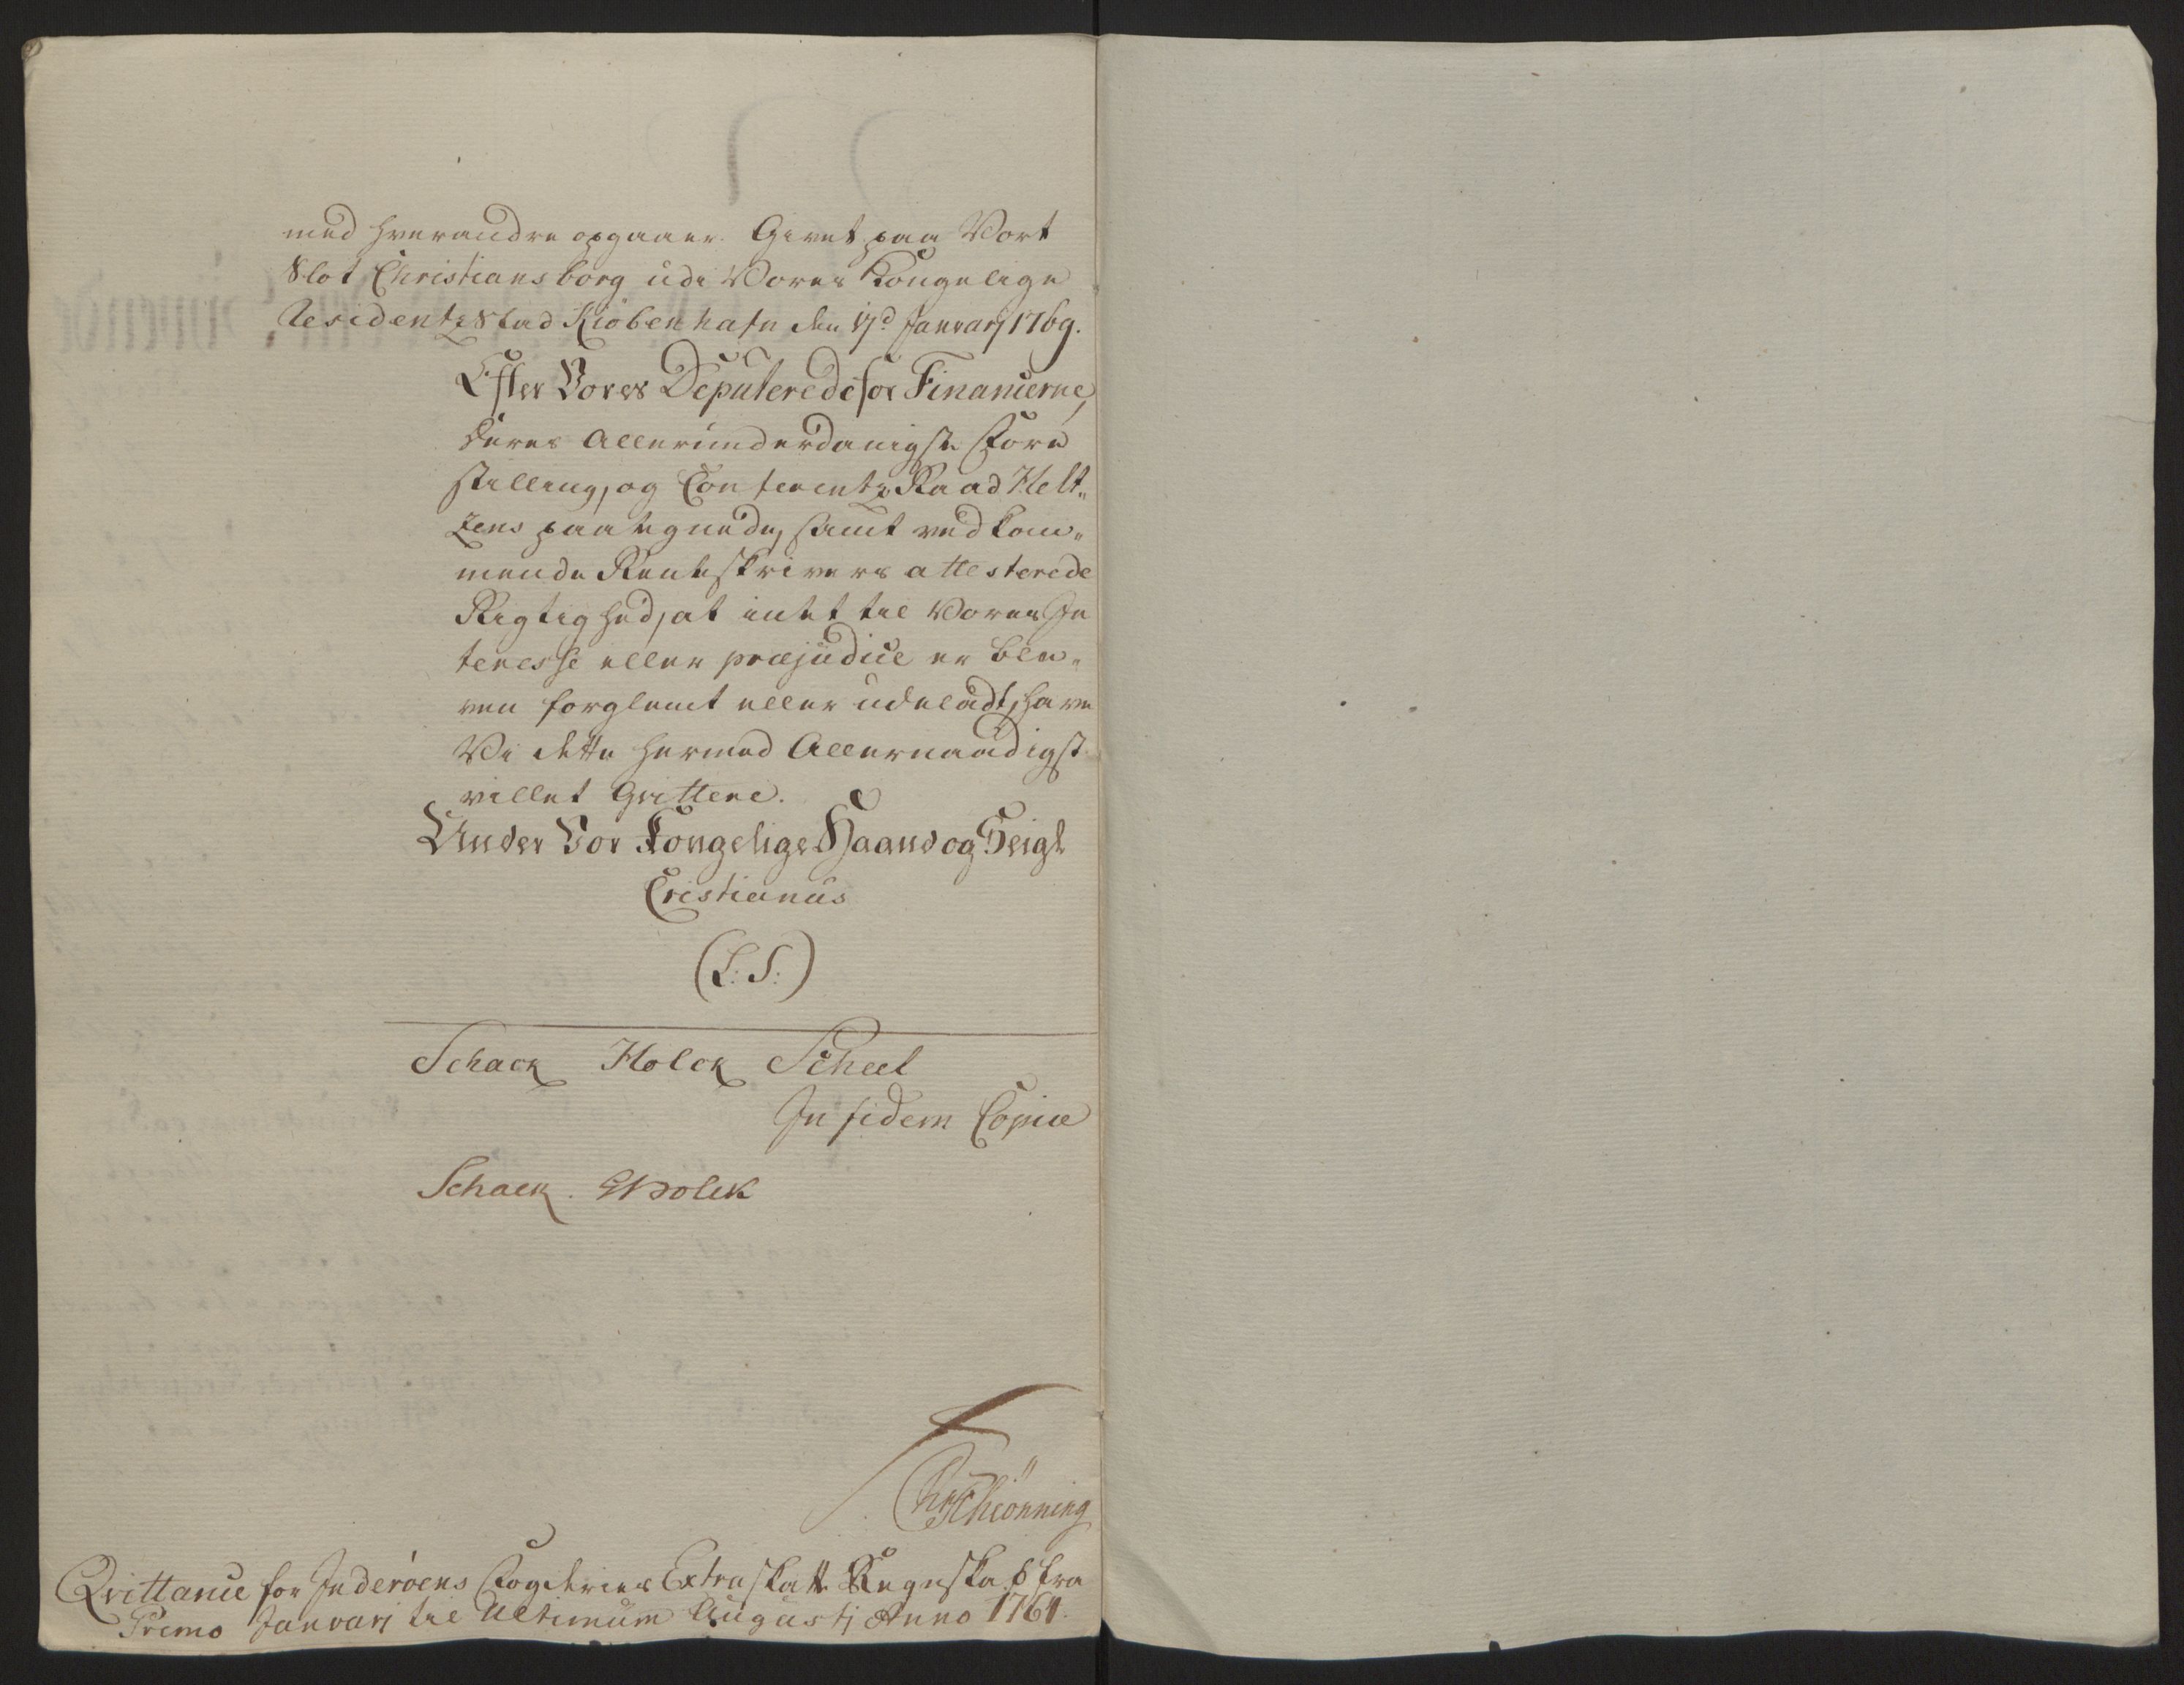 med hverandre opgaaer. Givet paa Vort
Slot Christiansborg udi Vores Kongelige
Residentz Stad Kiöbenhafn den 17d Januarj 1769.
Efter Vores Deputerede for Financierne,
deres Allerunderdanigste Fore
stilling, og Conferentz Raad Helt„
zens paategnede, samt vedkom„
mende Renteskrivers attesterede
Rigtighed, at intet til Vores In
teresse eller præjudice er ble„
ven forglemt eller udeladt, have
Vi dette hermed Allernaadigst
villet Qvittere.
Under Vor Kongelige Haand og Seigl
Cristianus
(L: S:)
Schack Holck Scheel
In fidem Copiæ
Schack. Holck
Schiönning
Qvittance for Inderöens Fogderies Extra skatte Regnskab fra
Primo Januarj til Ultimum Augustj Anno 1764.